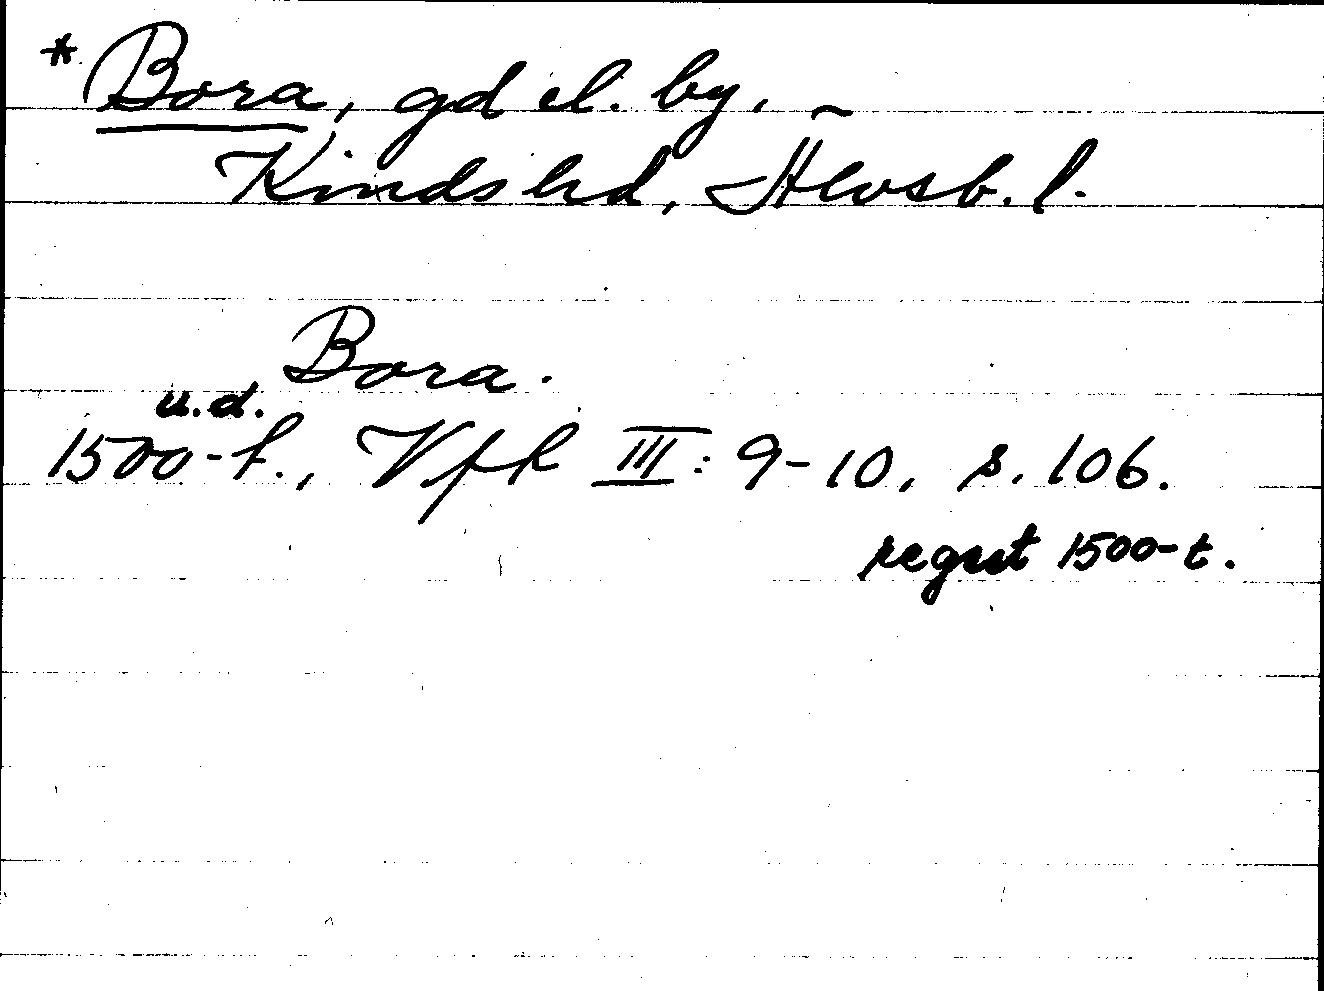 *Bora, gd el. by. ~
Kinds hd, Älvsb. l.
Bora.
u.d.
1500-t., Vfh III: 9-10, s. 106.
regest 1500-t.